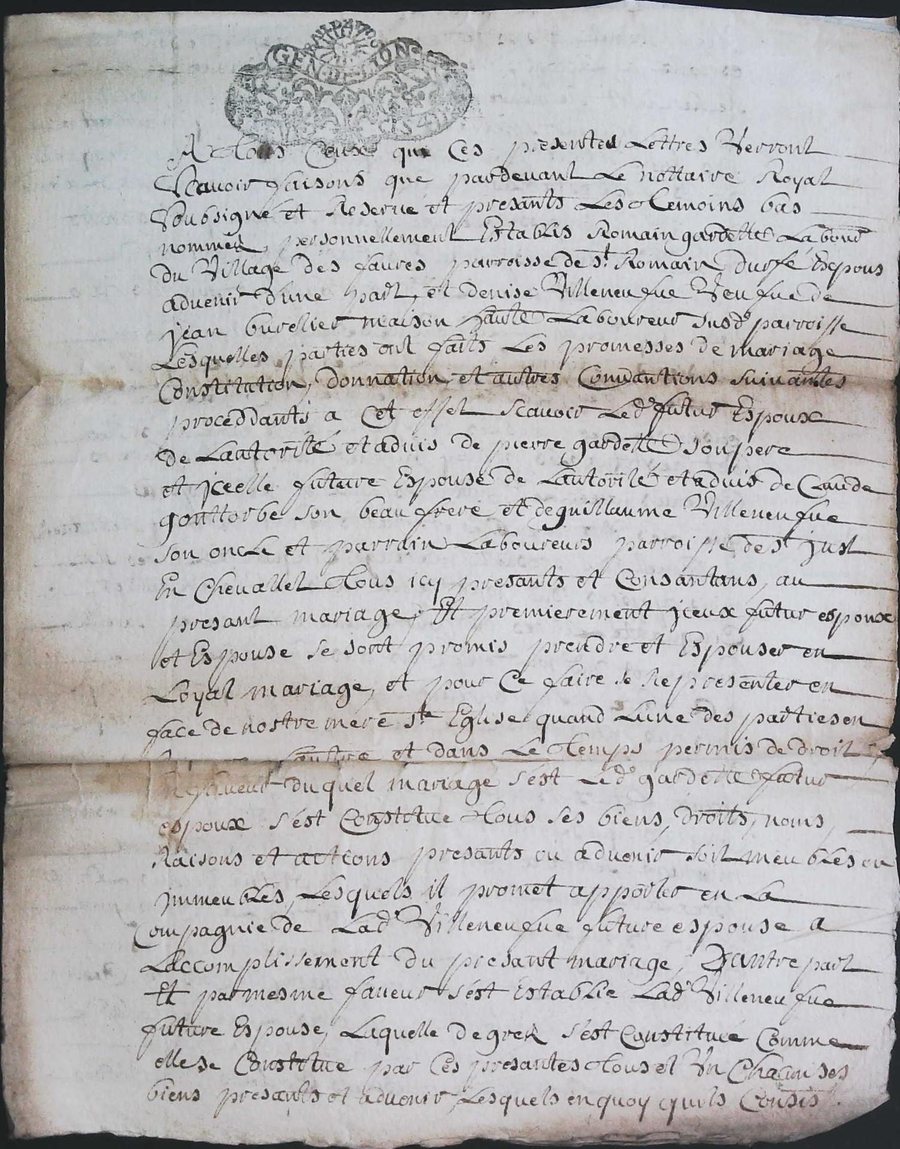 GEN DE LION
A Tous Ceux que Ces presentes Lettres Verront
Scavoir faisons que pardevant Le nottaire Royal
Soubsigné et Reservé et presants Les temoins bas
nommés, personnellement Establis Romain gardette Labour
du Village des faures parroisse de st Romain durfé Espoux
advenir d'une part, et denise Villeneufve Veufve de
jean burelier maison haute Laboureur susd parroisse
Lesquelles parties ont faits Les promesses de mariage
Constitution, donnation, et autres Convantions suivantes
proceddants a Cet effet Scavoir Led futur Espoux
de Lautorité et advis de pierre gardette son pere
et jcelle future Espouse de Lautorité et advis de Claude
gouttorbe son beau frere et de guillaume Villeneufve
son oncle et parrain Laboureurs parroisse de st just
En Chevallet Tous icy presants et Consantans, au
presant mariage, Et premierement jceux futur espoux
et Espouse se sont promis prendre et Espouser en
Loyal mariage, et pour Ce faire se Representer en
face de nostre mere ste Eglise quand Lune des parties en
Lautre et dans Le Temps permis de droit
duquel mariage s'est Led gardette futur
espoux s'est Constitue Tous ses biens, droits, noms,
Raisons et actions presants ou advenir soit meubles ou
jmmeubles, Lesquels il promet apporter en La
Compagnie de Lad Villeneufve future espouse a
Laccomplissement du presant mariage, Dautre part
Et par mesme faveur s'est Establie Lad Villeneufve
future Espouse, Laquelle de grez s'est Constitué Comme
elle se Constitue par Ces presantes Tous et Un Chacun ses
biens presants et advenir, Lesquels en quoy quils Consis